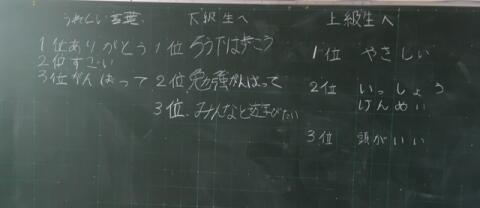 うれしい言葉
1位ありがとう
2位すごい
3位がんばって
下級生へ
1位ろう下は歩こう
2位勉強がんばって
3位.みんなと遊びたい
上級生へ
1位 やさしい
2位 いっしょう
けんめい
3位 頭がいい